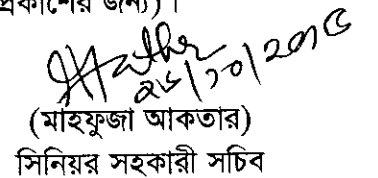 প্রকাশের জন্য)।
২৮/১০/২০১৫
(মাহফুজা আকতার)
সিনিয়র সহকারী সচিব